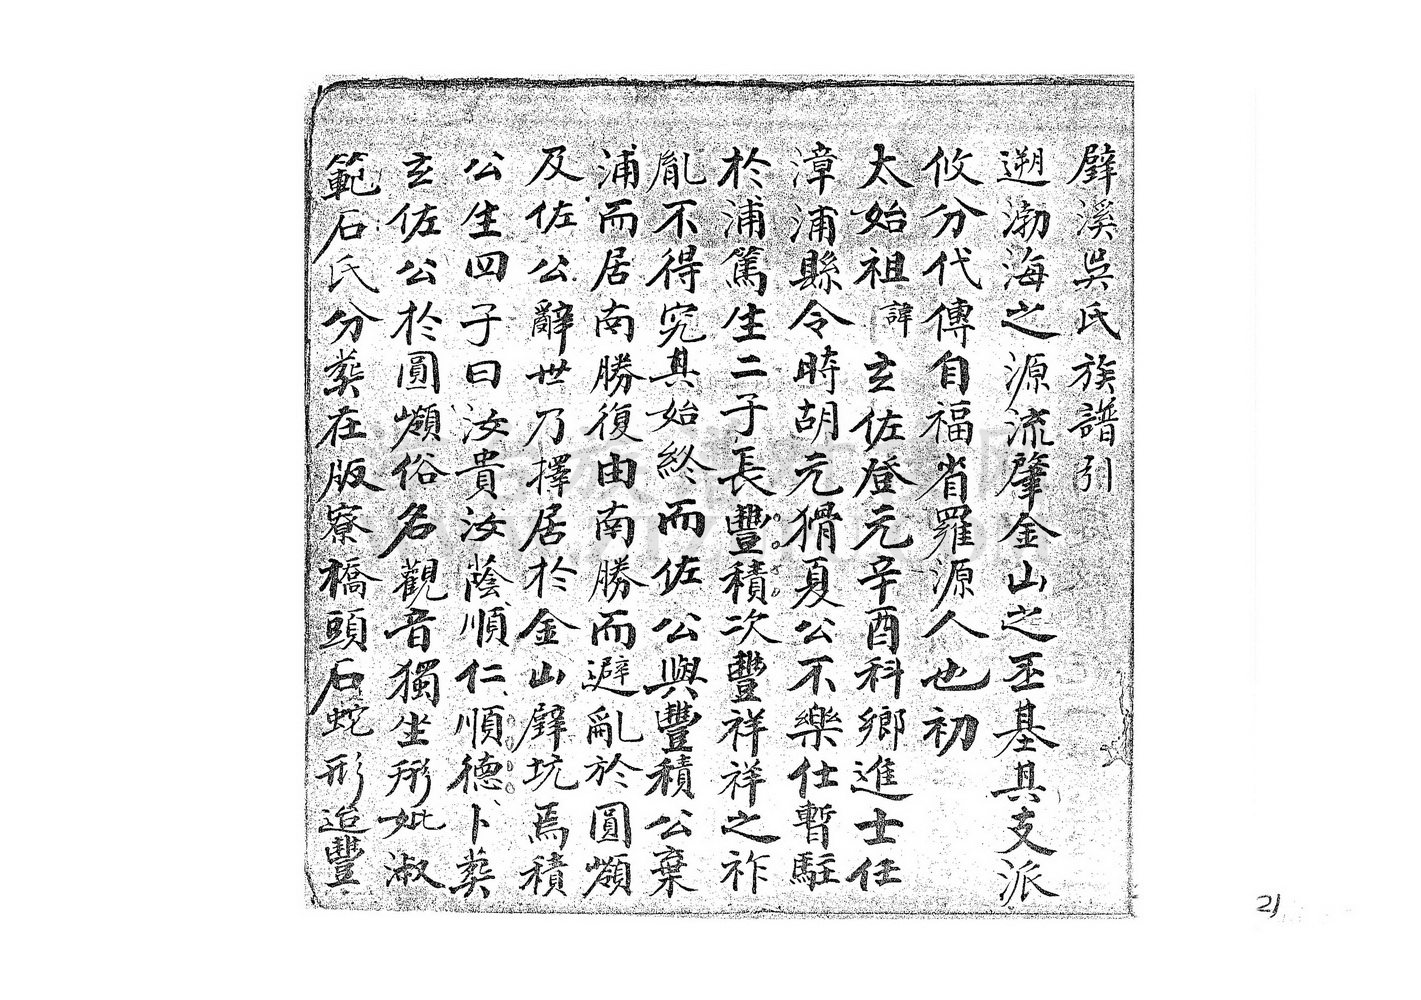 壁溪吳氏族譜引
遡渤海之源流肇金山之丕基其支派
攸分代傳自福省羅源人也初
太始祖諱玄佐登元辛酉科鄉進士任
漳浦縣令時胡元猾夏公不樂仕暫駐
於浦篤生二子長豐積次豐祥祥之祚
胤不得究其始終而佐公與豐積公棄
浦而居南勝復由南勝而避亂於圓嶺
及佐公辭世乃擇居於金山壁坑焉積
公生四子曰汝貴汝蔭順仁順德卜葬
玄佐公於圓嶺俗名觀音獨坐形妣淑
範石氏分葬在版寮橋頭石蛇形迨豐
21